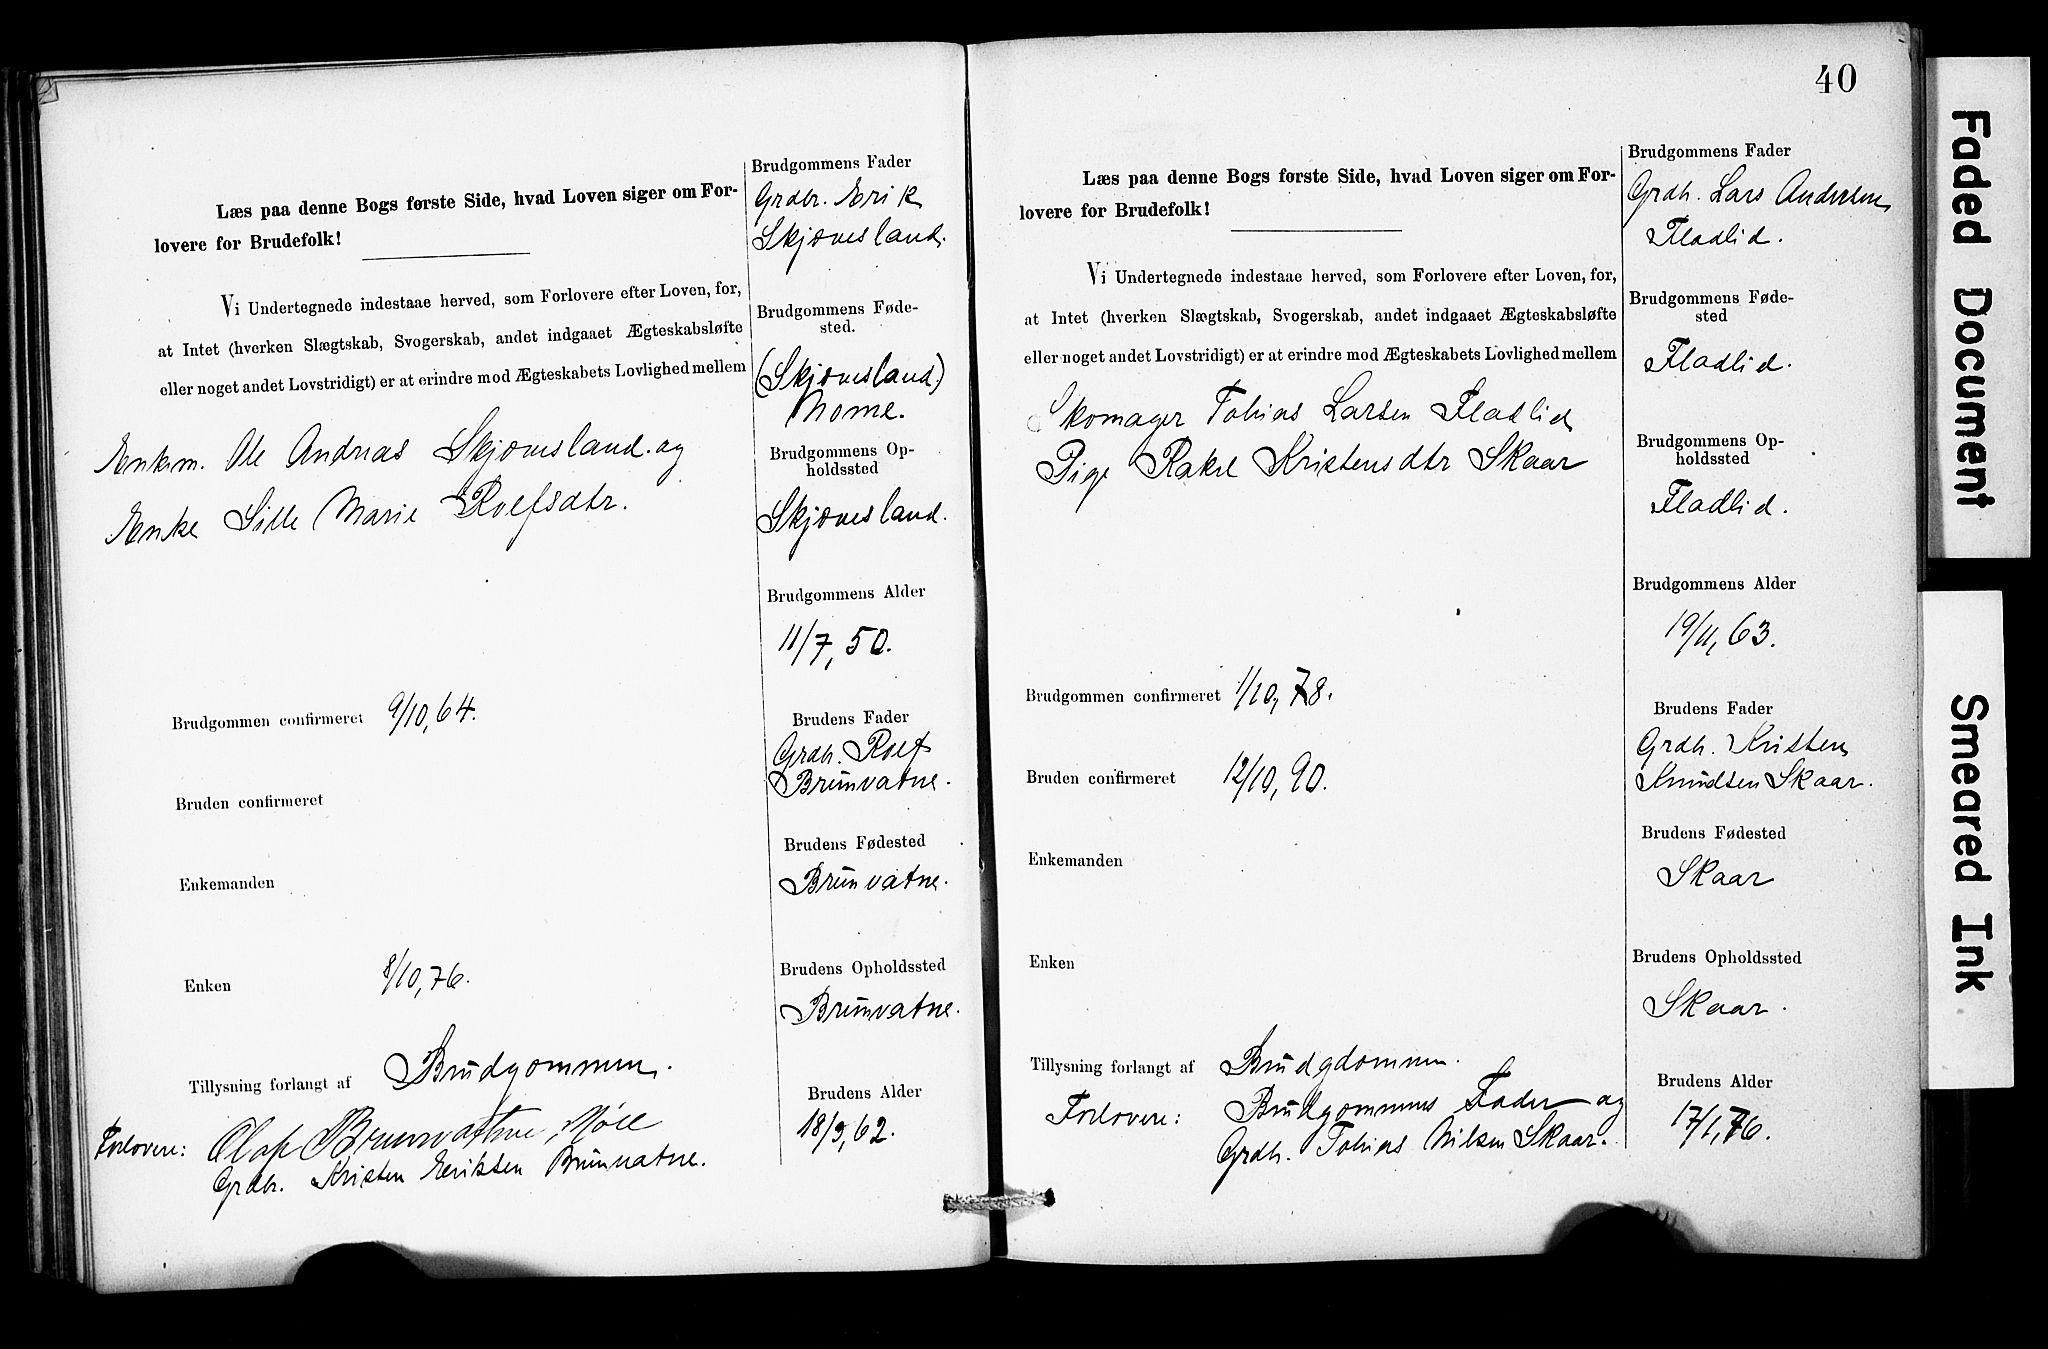 Læs paa denne Bogs første Side, hvad Loven siger om For-
lovere for Brudefolk!
Vi Undertegnede indestaae herved, som Forlovere efter Loven, for,
at Intet (hverken Slægtskab, Svogerskab, andet indgaaet Ægteskabsløfte
eller noget andet Lovstridigt) er at erindre mod Ægteskabets Lovlighed mellem
Enkem. Ole Andreas Skjævesland. og
Enke Sille Marie Roefsdtr.
Brudgommen confirmeret 9/10, 64.
Bruden confirmeret
Enkemanden
Enken 8/10, 76.
Tillysning forlangt af Brudgommen.
Forlovere: Olaf Brunvatne, Møll
Grdbr. Kristen Eriksen Brunvatne.
Brudgommens Fader
Grdbr. Erik
Skjævesland.
Brudgommens Føde-
sted.
(Skjævesland)
Mome.
Brudgommens Op-
holdssted
Skjævesland.
Brudgommens Alder
11/7, 50.
Brudens Fader
Grdb. Roef
Brunvatne.
Brudens Fødested
Brunvatne.
Brudens Opholdssted
Brunvatne.
Brudens Alder
18/3, 62.
40
Læs paa denne Bogs første Side, hvad Loven siger om For-
lovere for Brudefolk!
Vi Undertegnede indestaae herved, som Forlovere efter Loven, for,
at Intet (hverken Slægtskab, Svogerskab, andet indgaaet Ægteskabsløfte
eller noget andet Lovstridigt) er at erindre mod Ægteskabets Lovlighed mellem
Skomager Tobias Larsen Fladlid
Pige Rakel Kristensdtr Skaar
Brudgommen confirmeret 1/10, 78.
Bruden confirmeret 12/10, 90.
Enkemanden
Enken
Tillysning forlangt af Brudgdommen.
Forlovere: Brudgommens Fader og
Grdb. Tobias Nilsen Skaar.
Brudgommens Fader
Grdb. Lars Andersen
Fladlid.
Brudgommens Føde-
sted
Fladlid.
Brudgommens Op-
holdssted
Fladlid.
Brudgommens Alder
19/11, 63.
Brudens Fader
Grdb. Kristen
Knudsen Skaar.
Brudens Fødested
Skaar
Brudens Opholdssted
Skaar.
Brudens Alder
17/1, 76.
Faded Document
Smeared Ink